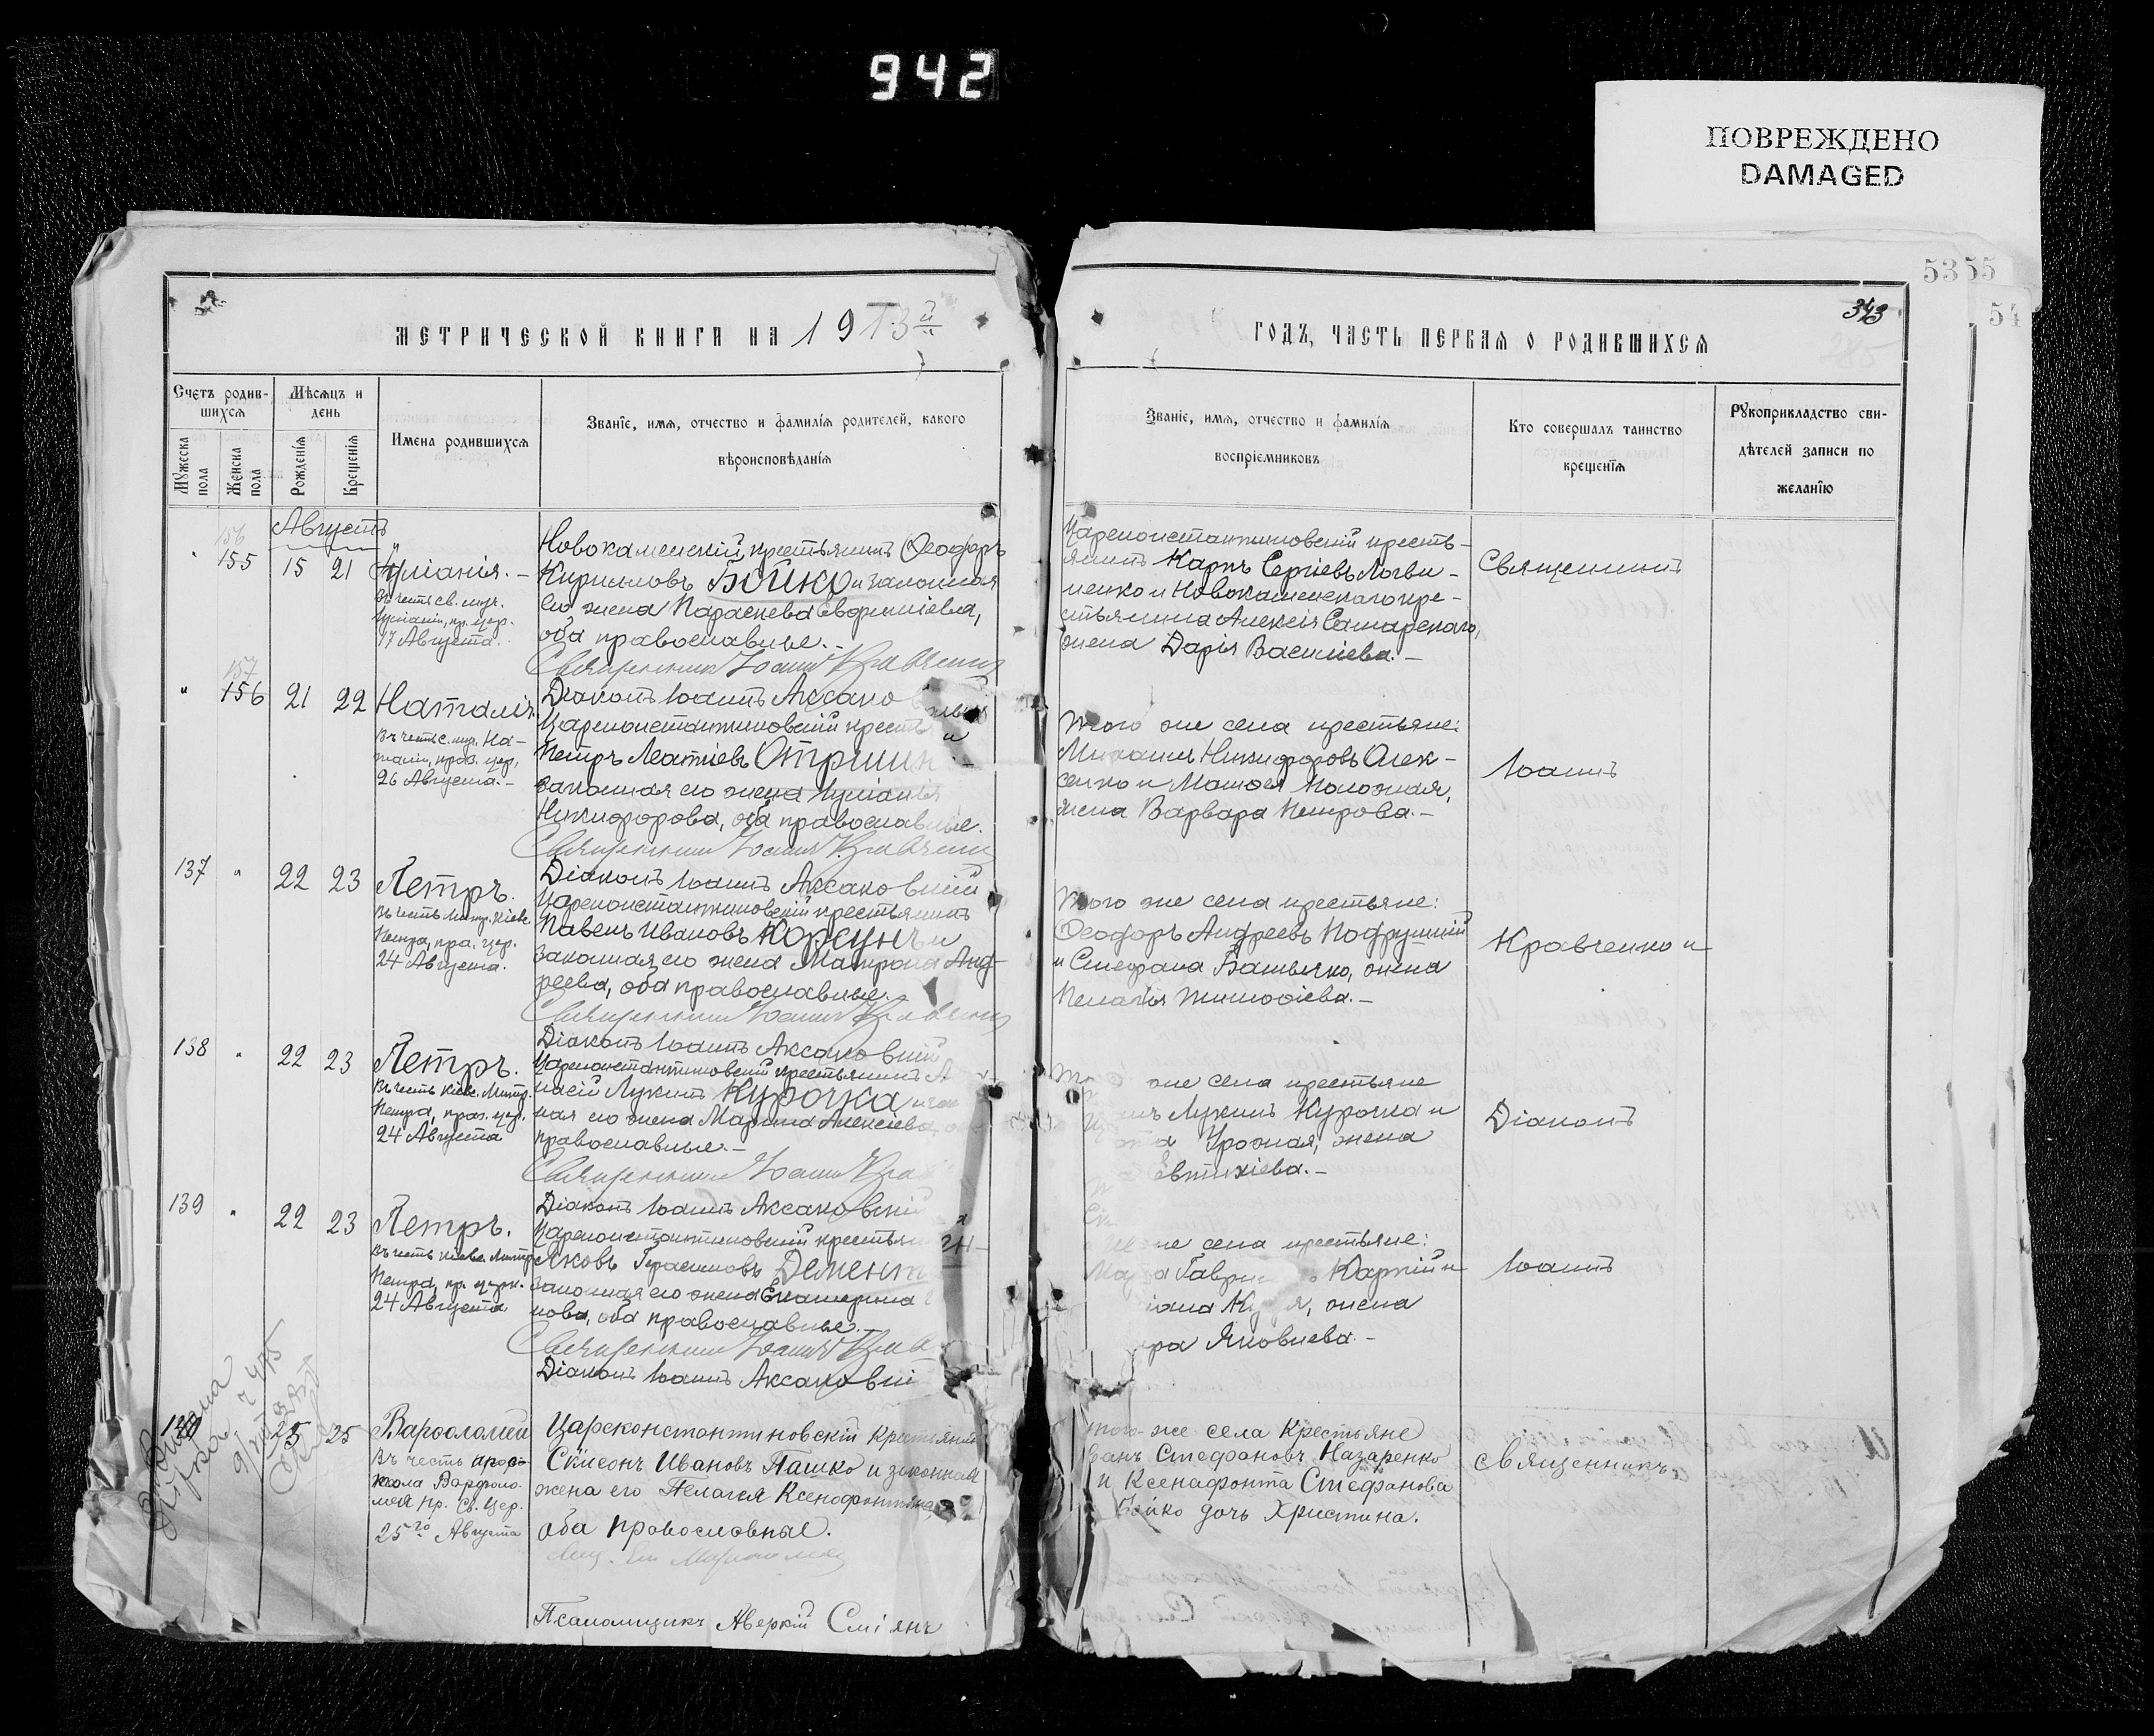 942
ПОВРЕЖДЕНО
DAMAGED
53 55
54
343
МЕТРИЧЕСКОЙ КНИГИ НА 1913й
ГОДЪ, ЧАСТЬ ПЕРВАЯ О РОДИВШИХСЯ
Счетъ родив-
шихся
Мужеска
пола
Женска
пола
Мѣсяцъ и
день
Рожденія
Крещенія
Имена родившихся
Званіе, имя, отчество и фамилія родителей, какого
вѣроисповѣданія
Званіе, имя, отчество и фамилія
воспріемниковъ
Кто совершалъ таинство
крещенія
Рукоприкладство сви-
дѣтелей записи по
желанію
Августъ
156
" 155 15 21
Іуліанія.-
Въ честь св. муч.
Іуліаніи, пр. цер.
17 Августа.
Новокаменскій крестьянинъ Ѳеодоръ
Кирилловъ Бойко и законная
его жена Параскева Евфиміева,
оба православные.-
Священникъ Іоаннъ Кравченко
Діаконъ Іоаннъ Аксаковскій
Цареконстантиновскій кресть-
янинъ Карпъ Сергіевъ Логви-
ненко и Новокаменскаго кре-
стьянина Алексія Самарскаго,
жена Дарія Василіева.-
Священникъ
157
" 156 21 22
Наталія.
Въ честь с. муч. На-
таліи, праз. цер.
26 Августа.-
Цареконстантиновскій кресть
Петръ Леонтіевъ
законная его жена Іуліанія
Никифорова, оба православные.
Священникъ Іоаннъ Кравченко
Діаконъ Іоаннъ Аксаковскій
Того же села крестьяне:
Михаилъ Никифоровъ Олек-
сенко и Моисея Положая,
жена Варвара Петрова.-
Іоаннъ
137 " 22 23
Петръ.
Въ честь Митр. Кіевс.
Петра, пра. цер.
24 Августа.
Цареконстантиновскій крестьянинъ
Павелъ Ивановъ Корсунъ и
законная его жена Матрона Анд-
реева, оба православные.-
Священникъ Іоаннъ Кравченко
Діаконъ Іоаннъ Аксаковскій
Того же села крестьяне:
Ѳеодоръ Андреевъ
и Стефана жена
Пелагія Тимоѳеева.-
Кравченко и
138 " 22 23
Петръ.
Въ честь Кіевс. Митр.
Петра, праз. цер.
24 Августа
Цареконстантиновскій крестьянинъ А
насій Лукинъ Курочка и зак
ная его жена Марина Алексіева,
православные.-
Священникъ Іоаннъ Крав
Діаконъ Іоаннъ Аксаковскій
же села крестьяне
Лукинъ Курочка и
Урожая, жена
Евтихіева.-
Діаконъ
139 " 22 23
Петръ.
Въ честь Кіевс. Митр.
Петра, пр. церк.
24 Августа
Цареконстантиновскій крестьян
Яковъ Герасимовъ Демент
законная его жена Екатерина
нова, оба православные.-
Священникъ Іоаннъ Крав
Діаконъ Іоаннъ Аксаковскі
же села крестьяне:
Гаври Картій и
жена
ра Яковлева.-
Іоаннъ
140 25 25
Варѳоломей
Въ честь апос-
тола Варфоло-
мея пр. св. цер.
25го Августа
Цареконстантиновскій Крестьянинъ
Сѵмеонъ Ивановъ Пашко и законная
жена его Пелагея Ксенофонтова
оба провословные.
Псаломщикъ Аверкій Сміянъ
того-же села Крестьяне
ванъ Стефановъ Назаренко
и Ксенафонта Стефанова
Бойко дочь Христина.
священникъ